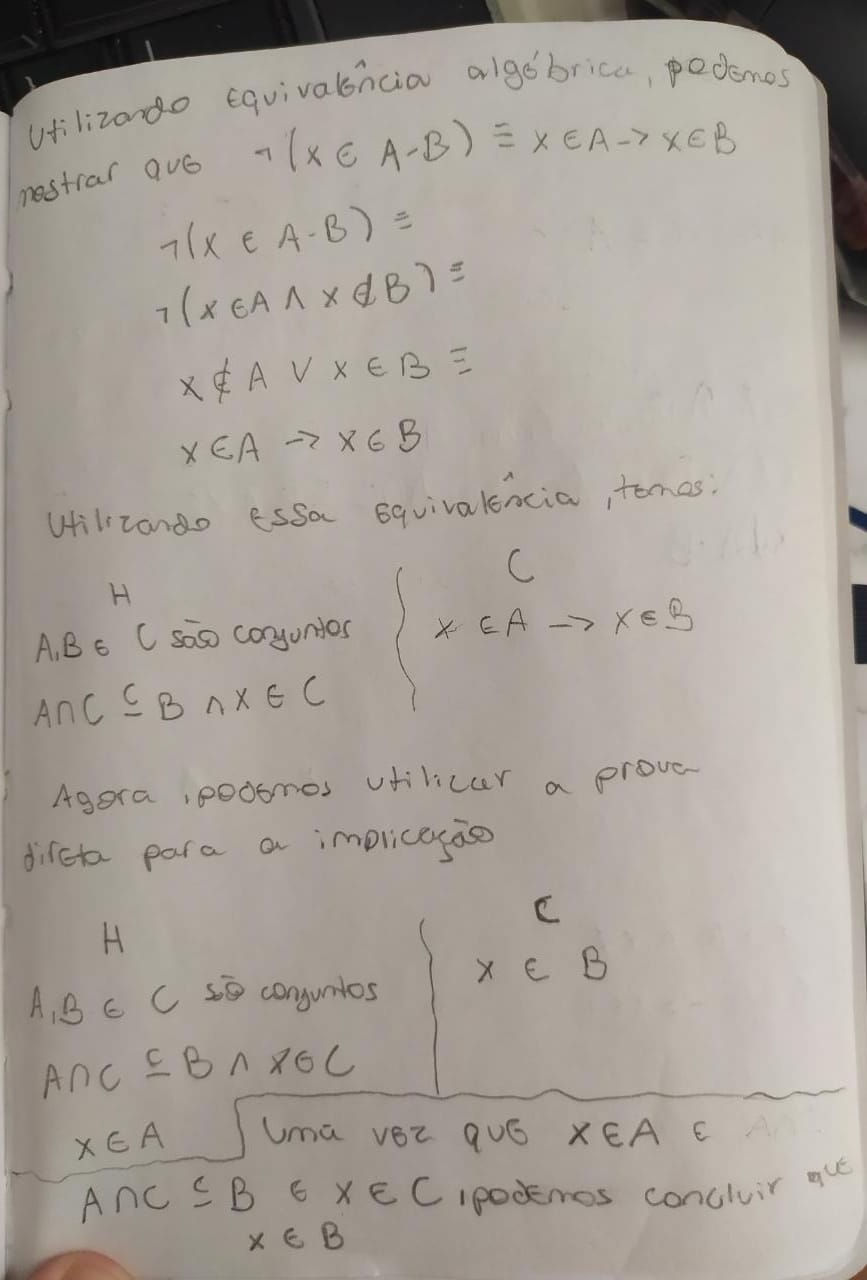 Utilizando equivalência algébrica, podemos
mostrar que ¬(x ∈ A-B) ≡ x ∈ A → x ∈ B
¬(x ∈ A-B) ≡
¬(x ∈ A ∧ x ∉ B) ≡
x ∉ A ∨ x ∈ B ≡
x ∈ A → x ∈ B
Utilizando essa equivalência, temos:
H C
A, B e C são conjuntos x ∈ A → x ∈ B
A∩C ⊆ B ∧ x ∈ C
Agora, podemos utilizar a prova
direta para a implicação
H C
A, B e C são conjuntos x ∈ B
A∩C ⊆ B ∧ x ∈ C
x ∈ A Uma vez que x ∈ A e
A∩C ⊆ B e x ∈ C, podemos concluir que
x ∈ B